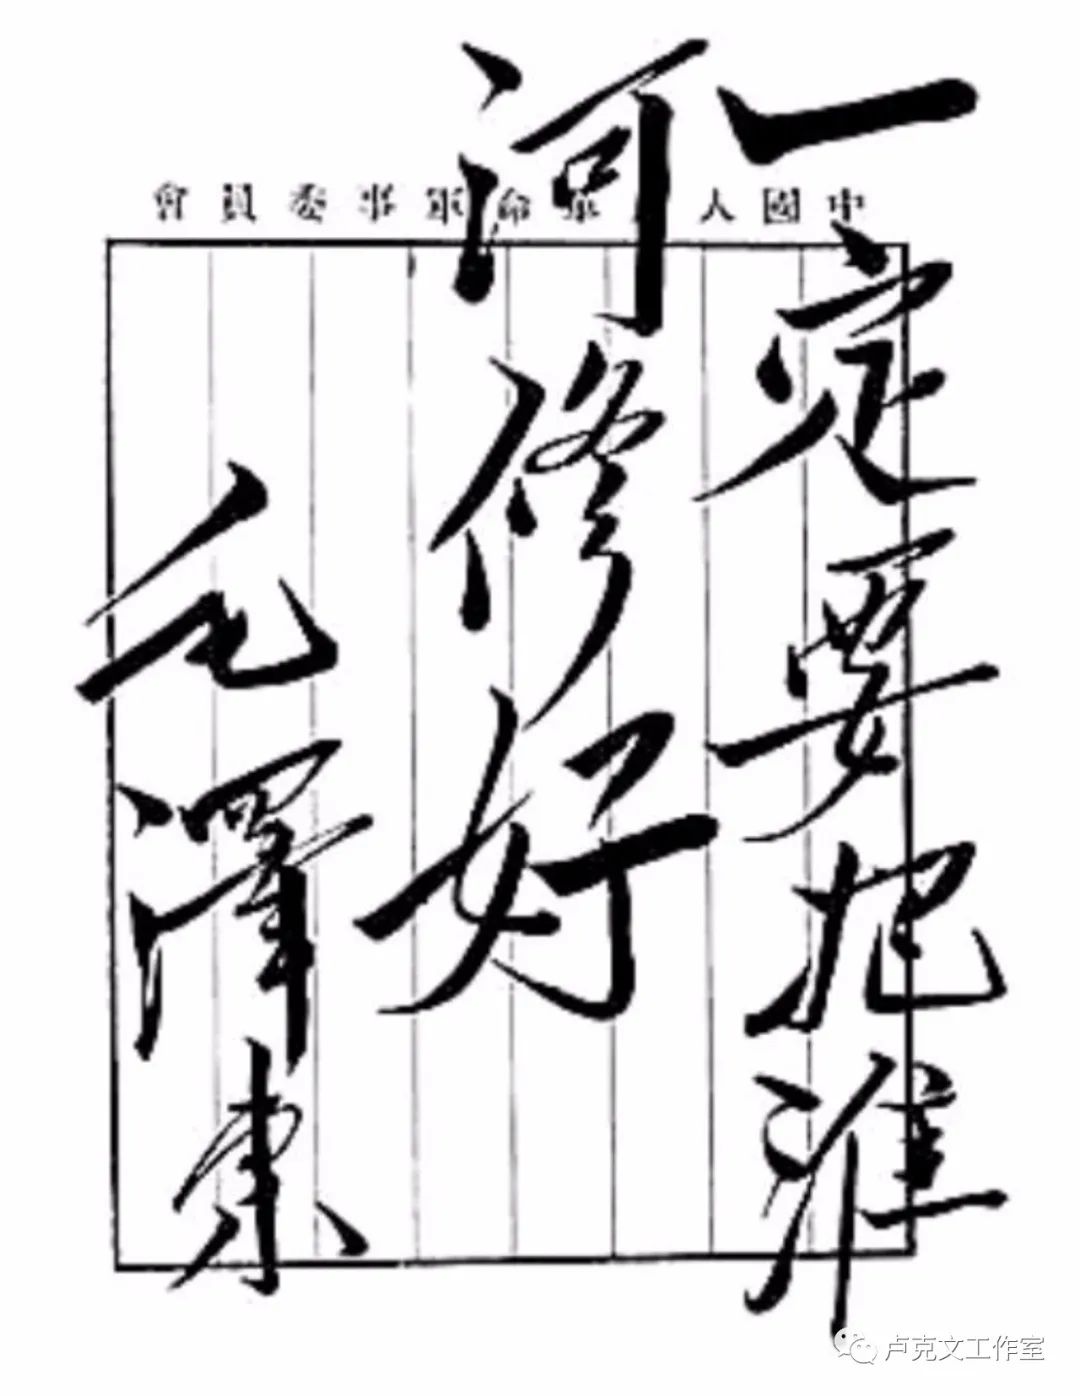 中國人革命軍事委員會
一定要把淮
河修好
毛澤東
卢克文工作室